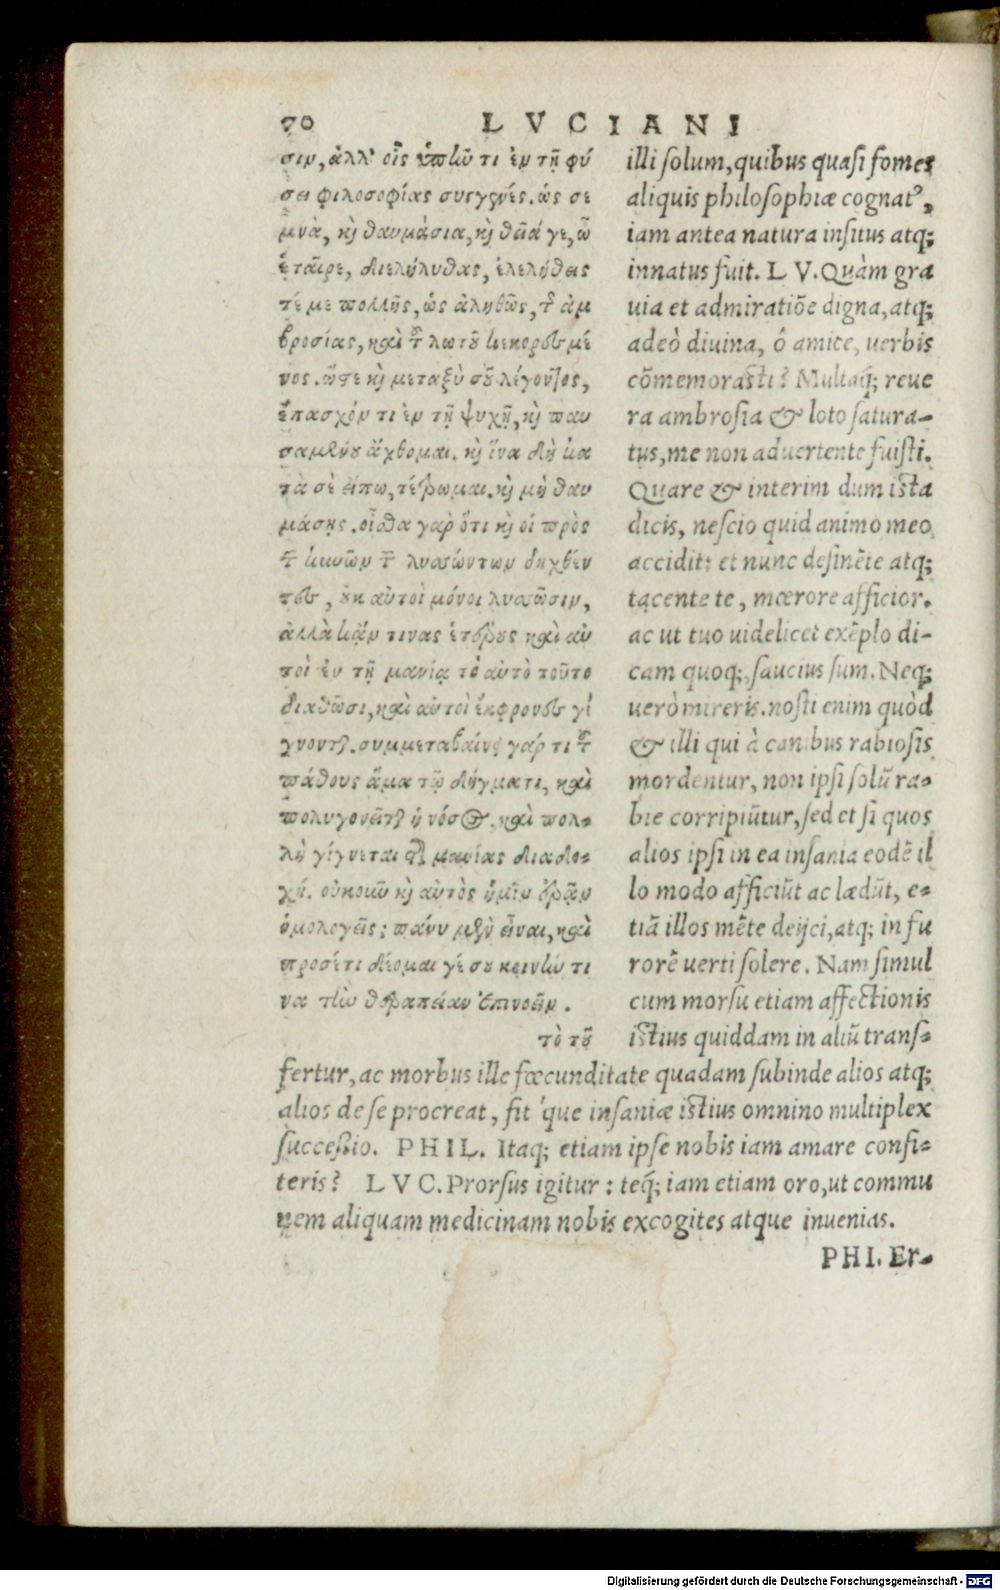 70 LVCIANI
σιν, ἀλλ' οἷς ὑπῆν τι ἐν τῇ φύ
σει φιλοσοφίας συγγενές. ὡς σε
μνὰ, καὶ θαυμάσια, καὶ θεῖά γε, ὦ
ἑταῖρε, διελήλυθας, ἐλελήθεις
τέ με πολλῆς, ὡς ἀληθῶς, τῆς ἀμ
βροσίας, καὶ τοῦ λωτοῦ κεκορεσμέ
νος. ὥστε καὶ μεταξὺ σοῦ λέγοντος,
ἔπασχόν τι ἐν τῇ ψυχῇ, καὶ παυ
σαμένου ἄχθομαι. καὶ ἵνα δὴ κα
τὰ σὲ εἴπω, τέτρωμαι. καὶ μὴ θαυ
μάσῃς. οἶσθα γὰρ ὅτι καὶ οἱ πρὸς
τῶν κυνῶν τῶν λυσσώντων δηχθέν
τες, οὐκ αὐτοὶ μόνοι λυσσῶσιν,
ἀλλὰ κἄν τινας ἑτέρους καὶ αὐ
τοὶ ἐν τῇ μανίᾳ τὸ αὐτὸ τοῦτο
διαθῶσι, καὶ αὐτοὶ ἔκφρονες γί
γνονται. συμμεταβαίνει γάρ τι τοῦ
πάθους ἅμα τῷ δήγματι, καὶ
πολυγονεῖται ἡ νόσος, καὶ πολ-
λὴ γίγνεται τῆς μανίας διαδο-
χή. οὐκοῦν καὶ αὐτὸς ἡμῖν ἐρᾷν
ὁμολογεῖς; πάνυ μὲν εἶναι, καὶ
προσέτι δέομαί γέ σου κοινήν τι
να τὴν θεραπείαν ἐπινοεῖν.
τὸ τοῦ
illi solum, quibus quasi fomes
aliquis philosophiæ cognatꝰ,
iam antea natura insitus atq;
innatus fuit. L V. Quàm gra
uia et admiratiõe digna, atq;
adeò diuina, ô amice, uerbis
cõmemorasti? Multaq́; reue
ra ambrosia & loto satura-
tus, me non aduertente fuisti.
Quare & interim dum ista
dicis, nescio quid animo meo
accidit: et nunc desinẽte atq;
tacente te, mœrore afficior.
ac ut tuo uidelicet exẽplo di-
cam quoq;, saucius sum. Neq;
uerò mireris. nosti enim quòd
& illi qui à canibus rabiosis
mordentur, non ipsi solũ ra-
bie corripiũtur, sed et si quos
alios ipsi in ea insania eodẽ il
lo modo afficiũt ac lædũt, e-
tiã illos mẽte deijci, atq; in fu
rorẽ uerti solere. Nam simul
cum morsu etiam affectionis
istius quiddam in aliũ trans-
fertur, ac morbus ille fœcunditate quadam subinde alios atq;
alios de se procreat, fit 'que insaniæ istius omnino multiplex
successio. PHIL. Itaq; etiam ipse nobis iam amare confi-
teris? LVC. Prorsus igitur: teq́; iam etiam oro, ut commu
nem aliquam medicinam nobis excogites atque inuenias.
PHI. Er-
Digitalisierung gefördert durch die Deutsche Forschungsgemeinschaft - DFG